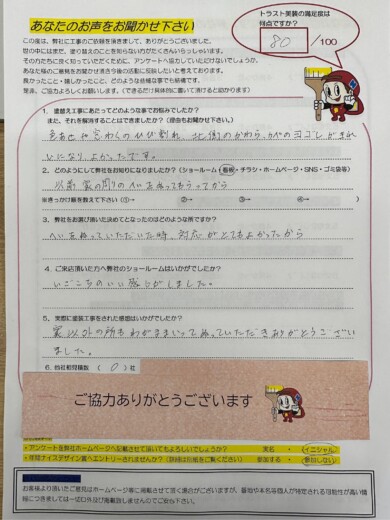 あなたのお声をお聞かせ下さい
トラスト美装の満足度は
何点ですか?
80 /100
この度は、弊社に工事のご依頼を頂きまして、ありがとうございました。
世の中にはまだ、塗り替えのことを知らない方がたくさんいらっしゃいます。
その方たちに良く知っていただくために、アンケートへ協力していただけないでしょうか。
あなた様のご意見をお聞かせ頂き今後の活動に役立したいと考えております。
良かったことと・嬉しかったこと、どのような些細な事でも結構です。
是非、ご協力よろしくお願いします。(できるだけ具体的に書いて頂けると助かります)
1. 塗替え工事にあたってどのような事でお悩みでしたか?
また、それを解消することはできましたか?(理由もお聞かせ下さい。)
色あせや窓わくのひび割れ、北側のかわら、カベのヨゴレがきれ
いになり、よかったです。
2. どのようにして弊社をお知りになりましたか?(ショールーム・看板・チラシ・ホームページ・SNS・ゴミ袋等)
以前家の周りのへいをぬってもらってから
※きっかけ順を教えて下さい(①→ ②→ ③→ ④→ )
3. 弊社をお選び頂いた決めてとなったのはどのような所ですか?
へいをぬっていただいた時、対応がとてもよかったから
4. ご来店頂いた方へ弊社のショールームはいかがでしたか?
いごこちのいい感じがしました。
5. 実際に塗装工事をされた感想はいかがでしたか?
家以外の所もわがままいってぬっていただきありがとうござい
ました。
6. 他社相見積数 ( 0 )社
ご協力ありがとうございます
・アンケートを弊社ホームページへ記載させて頂いてもよろしいでしょうか? 実名 ・ イニシャル
・年間ナイスデザイン賞へエントリーされませんか?(詳細は別紙をご覧ください) 参加する ・ 参加しない
お客様より頂いたご意見はホームページ等に掲載させて頂く場合がございますが、番地や本名等個人が特定される可能性が高い情
報につきましては一切口外及び掲載致しませんのでご安心下さい。